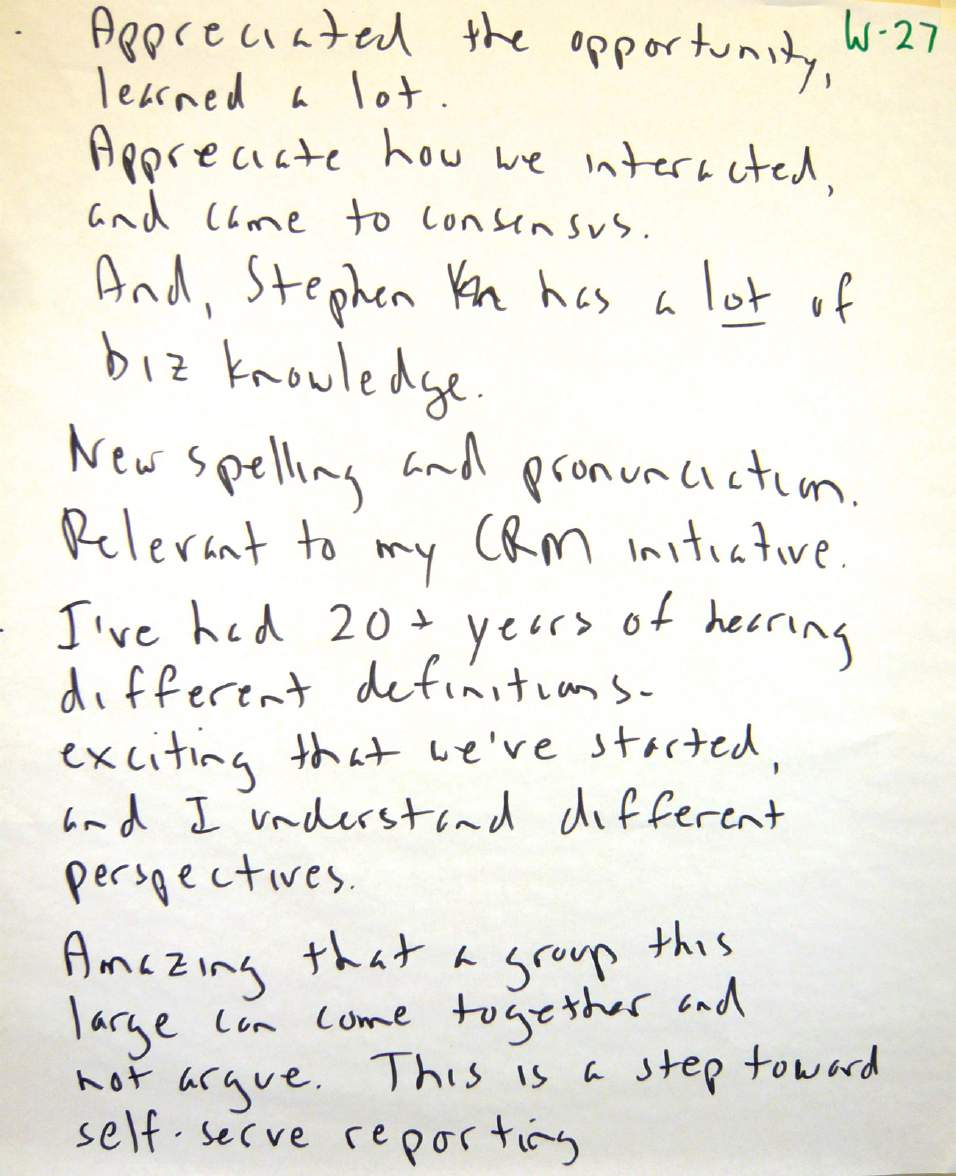 Appreciated the opportunity, W-27
learned a lot.
Appreciate how we interacted,
and came to consensus.
And, Stephen has a lot of
biz knowledge.
New spelling and pronunciation.
Relevant to my CRM initiative.
I've had 20+ years of hearing
different definitions-
exciting that we've started,
and I understand different
perspectives.
Amazing that a group this
large can come together and
not argue. This is a step toward
self-serve reporting